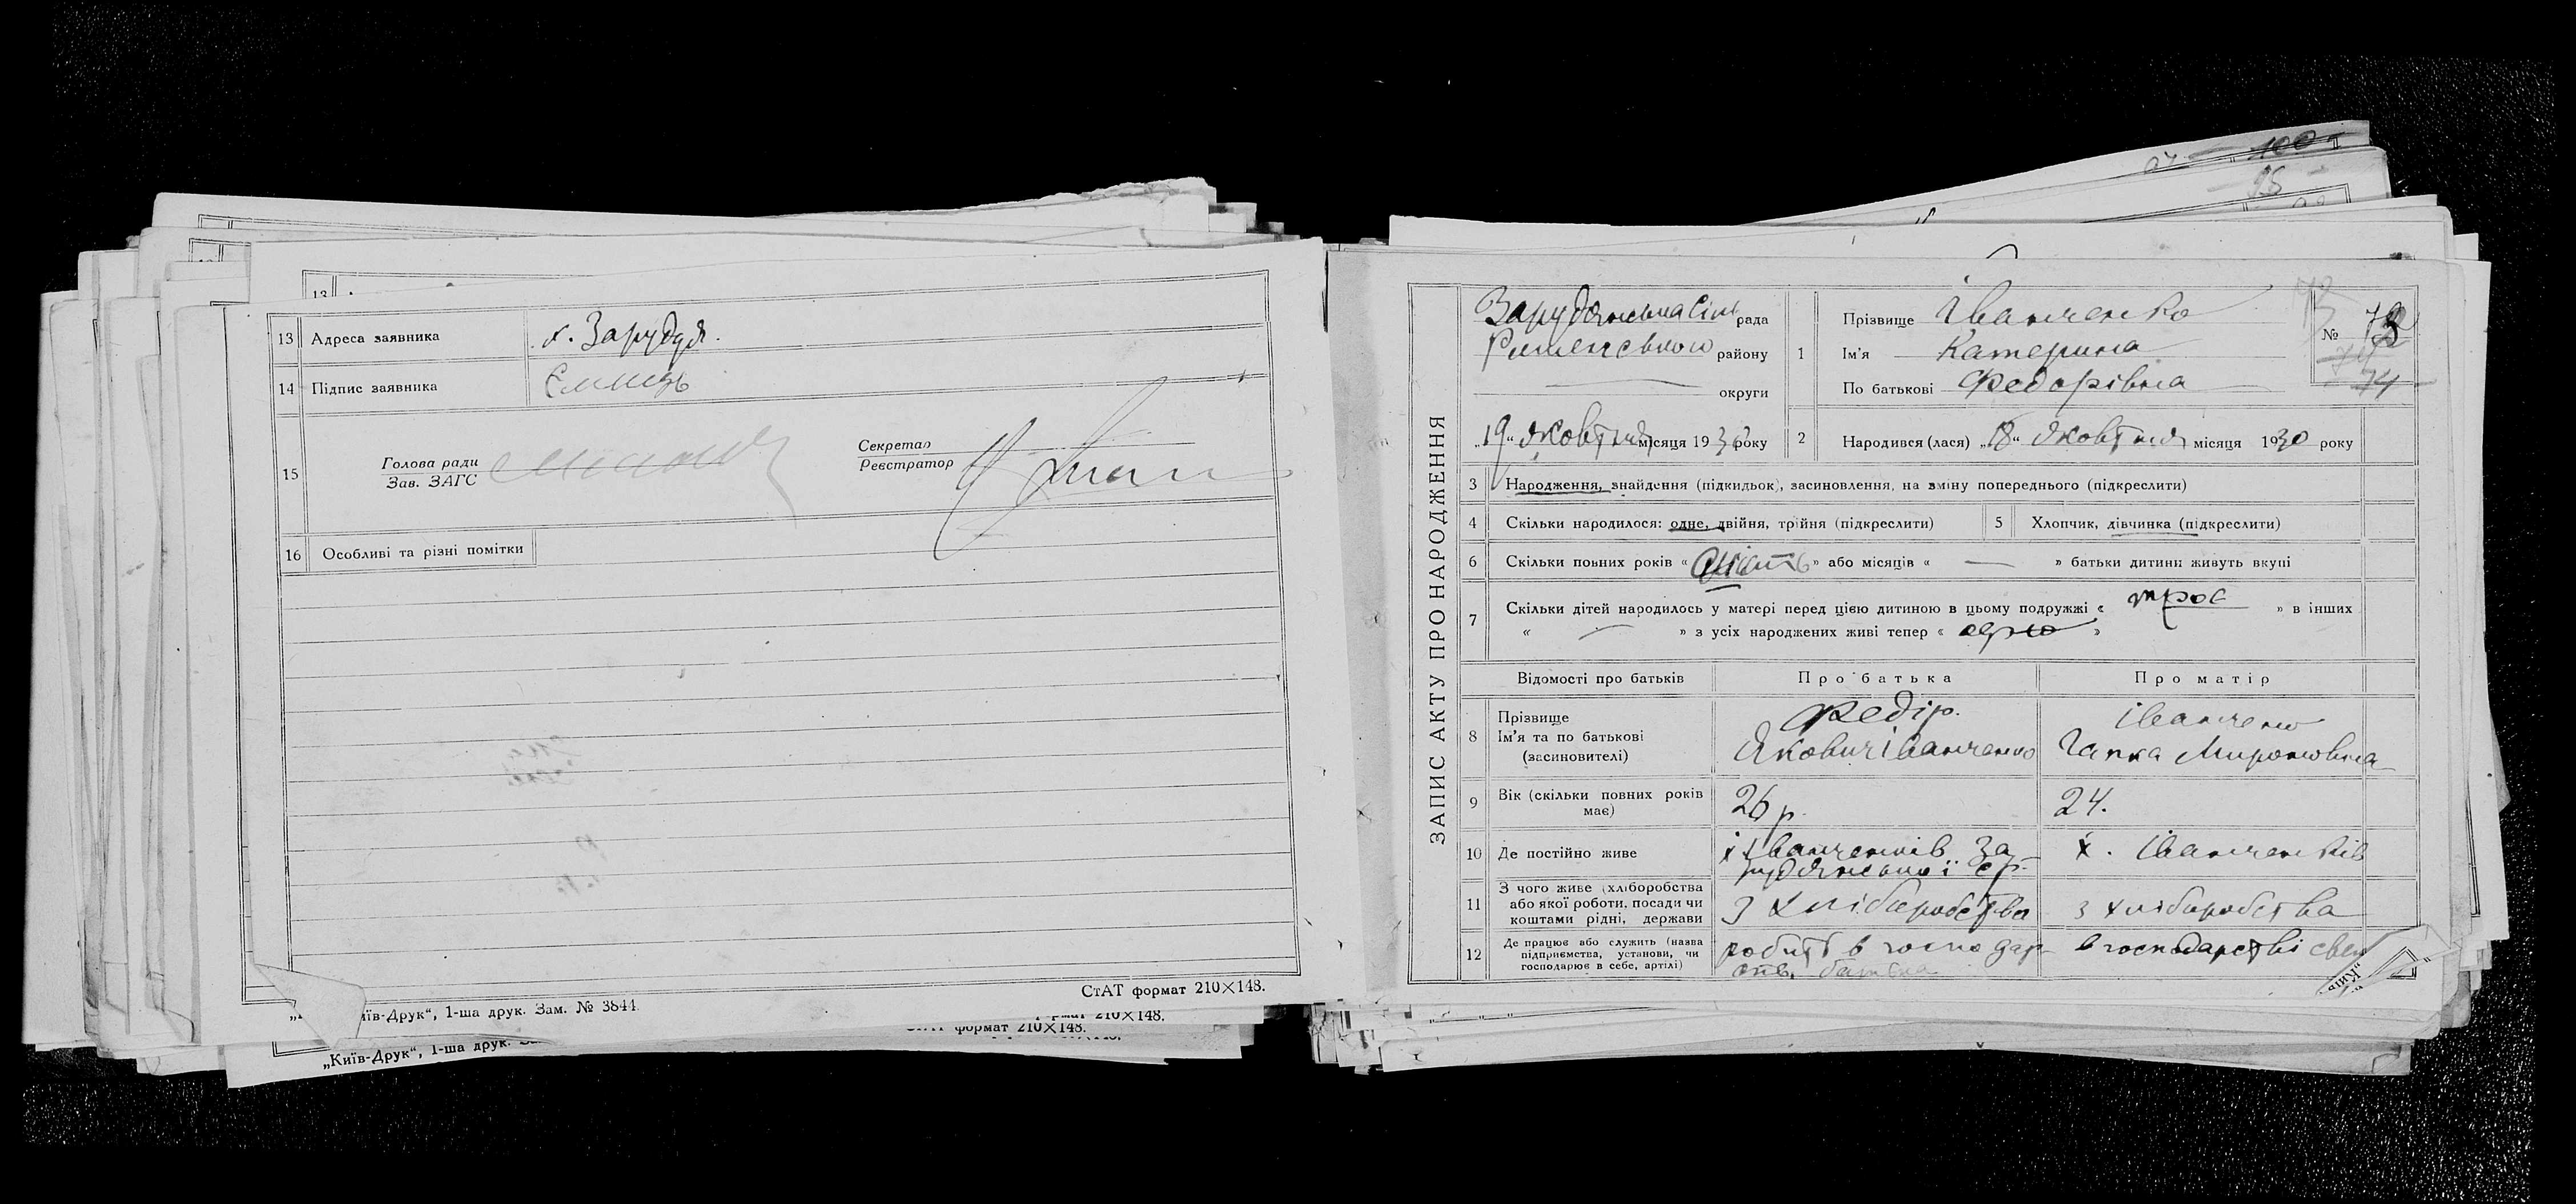 13 Адреса заявника х. Заруддя.
14 Підпис заявника Ємець
15 Голова ради
Зав. ЗАГС
Секретар
Реєстратор
16 Особливі та різні помітки
СтАТ формат 210×148.
їв-Друк“, 1-ша друк. Зам. № 3844
формат 210×148.
„Київ-Друк“, 1-ша друк.
ЗАПИС АКТУ ПРО НАРОДЖЕННЯ
Зарудянська Сіль рада
Роменського району
округи
„19“ Жовтня місяця 1930 року
1 Прізвище Іванченко
Ім'я Катерина
По батькові Федорівна
№ 73
74
2 Народився (лася) „18“ Жовтня місяця 1930 року
3 Народження, знайдення (підкидьок), засиновлення, на зміну попереднього (підкреслити)
4 Скільки народилося: одне, двійня, трійня (підкреслити)
5 Хлопчик, дівчинка (підкреслити)
6 Скільки повних років « » або місяців « — » батьки дитини живуть вкупі
7 Скільки дітей народилось у матері перед цією дитиною в цьому подружжі « троє » в інших
« — » з усіх народжених живі тепер « одно »
Відомості про батьків Про батька Про матір
8 Прізвище
Ім'я та по батькові
(засиновителі)
Федір.
Якович Іванченко
Іванченко
Гапка Мироновна
9 Вік (скільки повних років має) 26 р. 24.
10 Де постійно живе х Іванченків За-
рудянської с.р.
х. Іванченків
11 З чого живе (хліборобства
або якої роботи, посади чи
коштами рідні, держави
З хліборобства
з хліборобства
12 Де працює або служить (назва
підприємства, установи, чи
господарює в себе, артілі)
робить в господар-
ств. батька
в господарстві свек